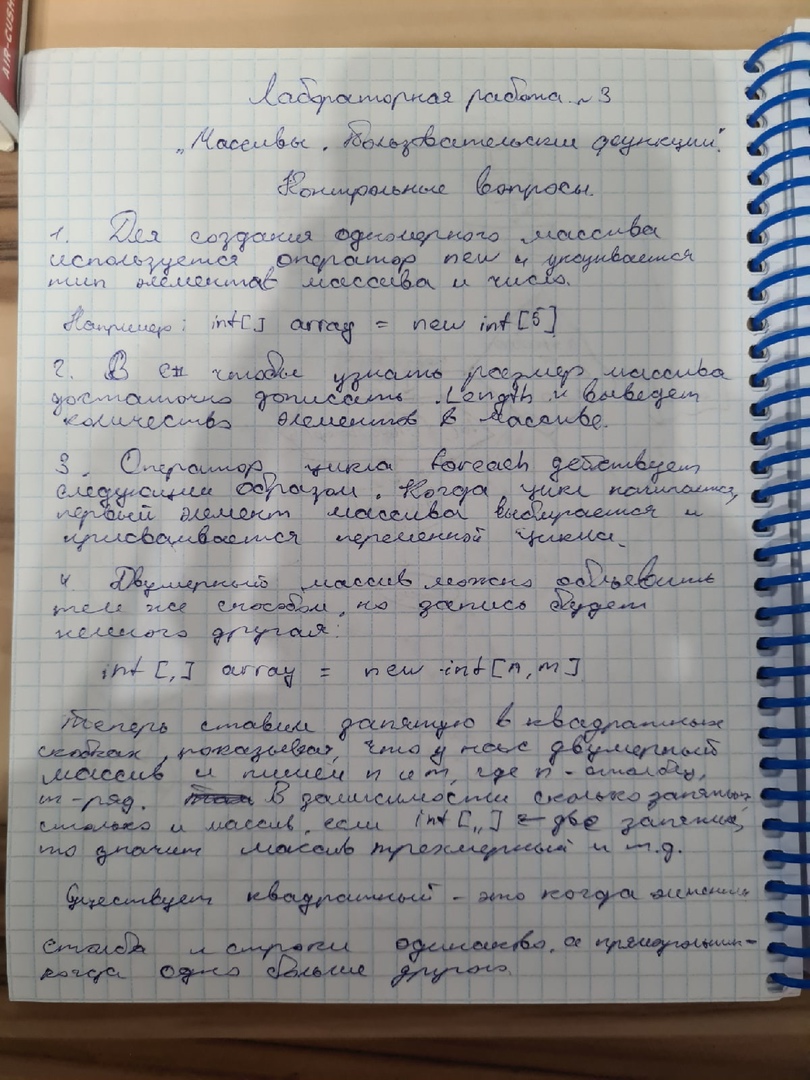 AIR-CUSH
Лабораторная работа №3
"Массивы. Пользовательские функции".
Контрольные вопросы.
1. Для создания одномерного массива
используется оператор new и указывается
тип элементов массива и число.
Например: int[] array = new int[5]
2. В C# чтобы узнать размер массива
достаточно дописать .Length и выведет
количество элементов в массиве.
3. Оператор цикла foreach действует
следующим образом. Когда цикл начинается,
первый элемент массива выбирается и
присваивается переменной цикла.
4. Двумерный массив можно объявить
тем же способом, но запись будет
немного другая:
int [,] array = new int[n,m]
Теперь ставим запятую в квадратных
скобках, показывая, что у нас двумерный
массив и пишем n и m, где n - столбец,
m - ряд. В зависимости сколько запятых,
столько и массив, если int[,,] - две запятые,
то значит массив трехмерный и т.д.
Существует квадратный - это когда
столба и строки одинаково, а прямоугольный -
когда одно больше другого.